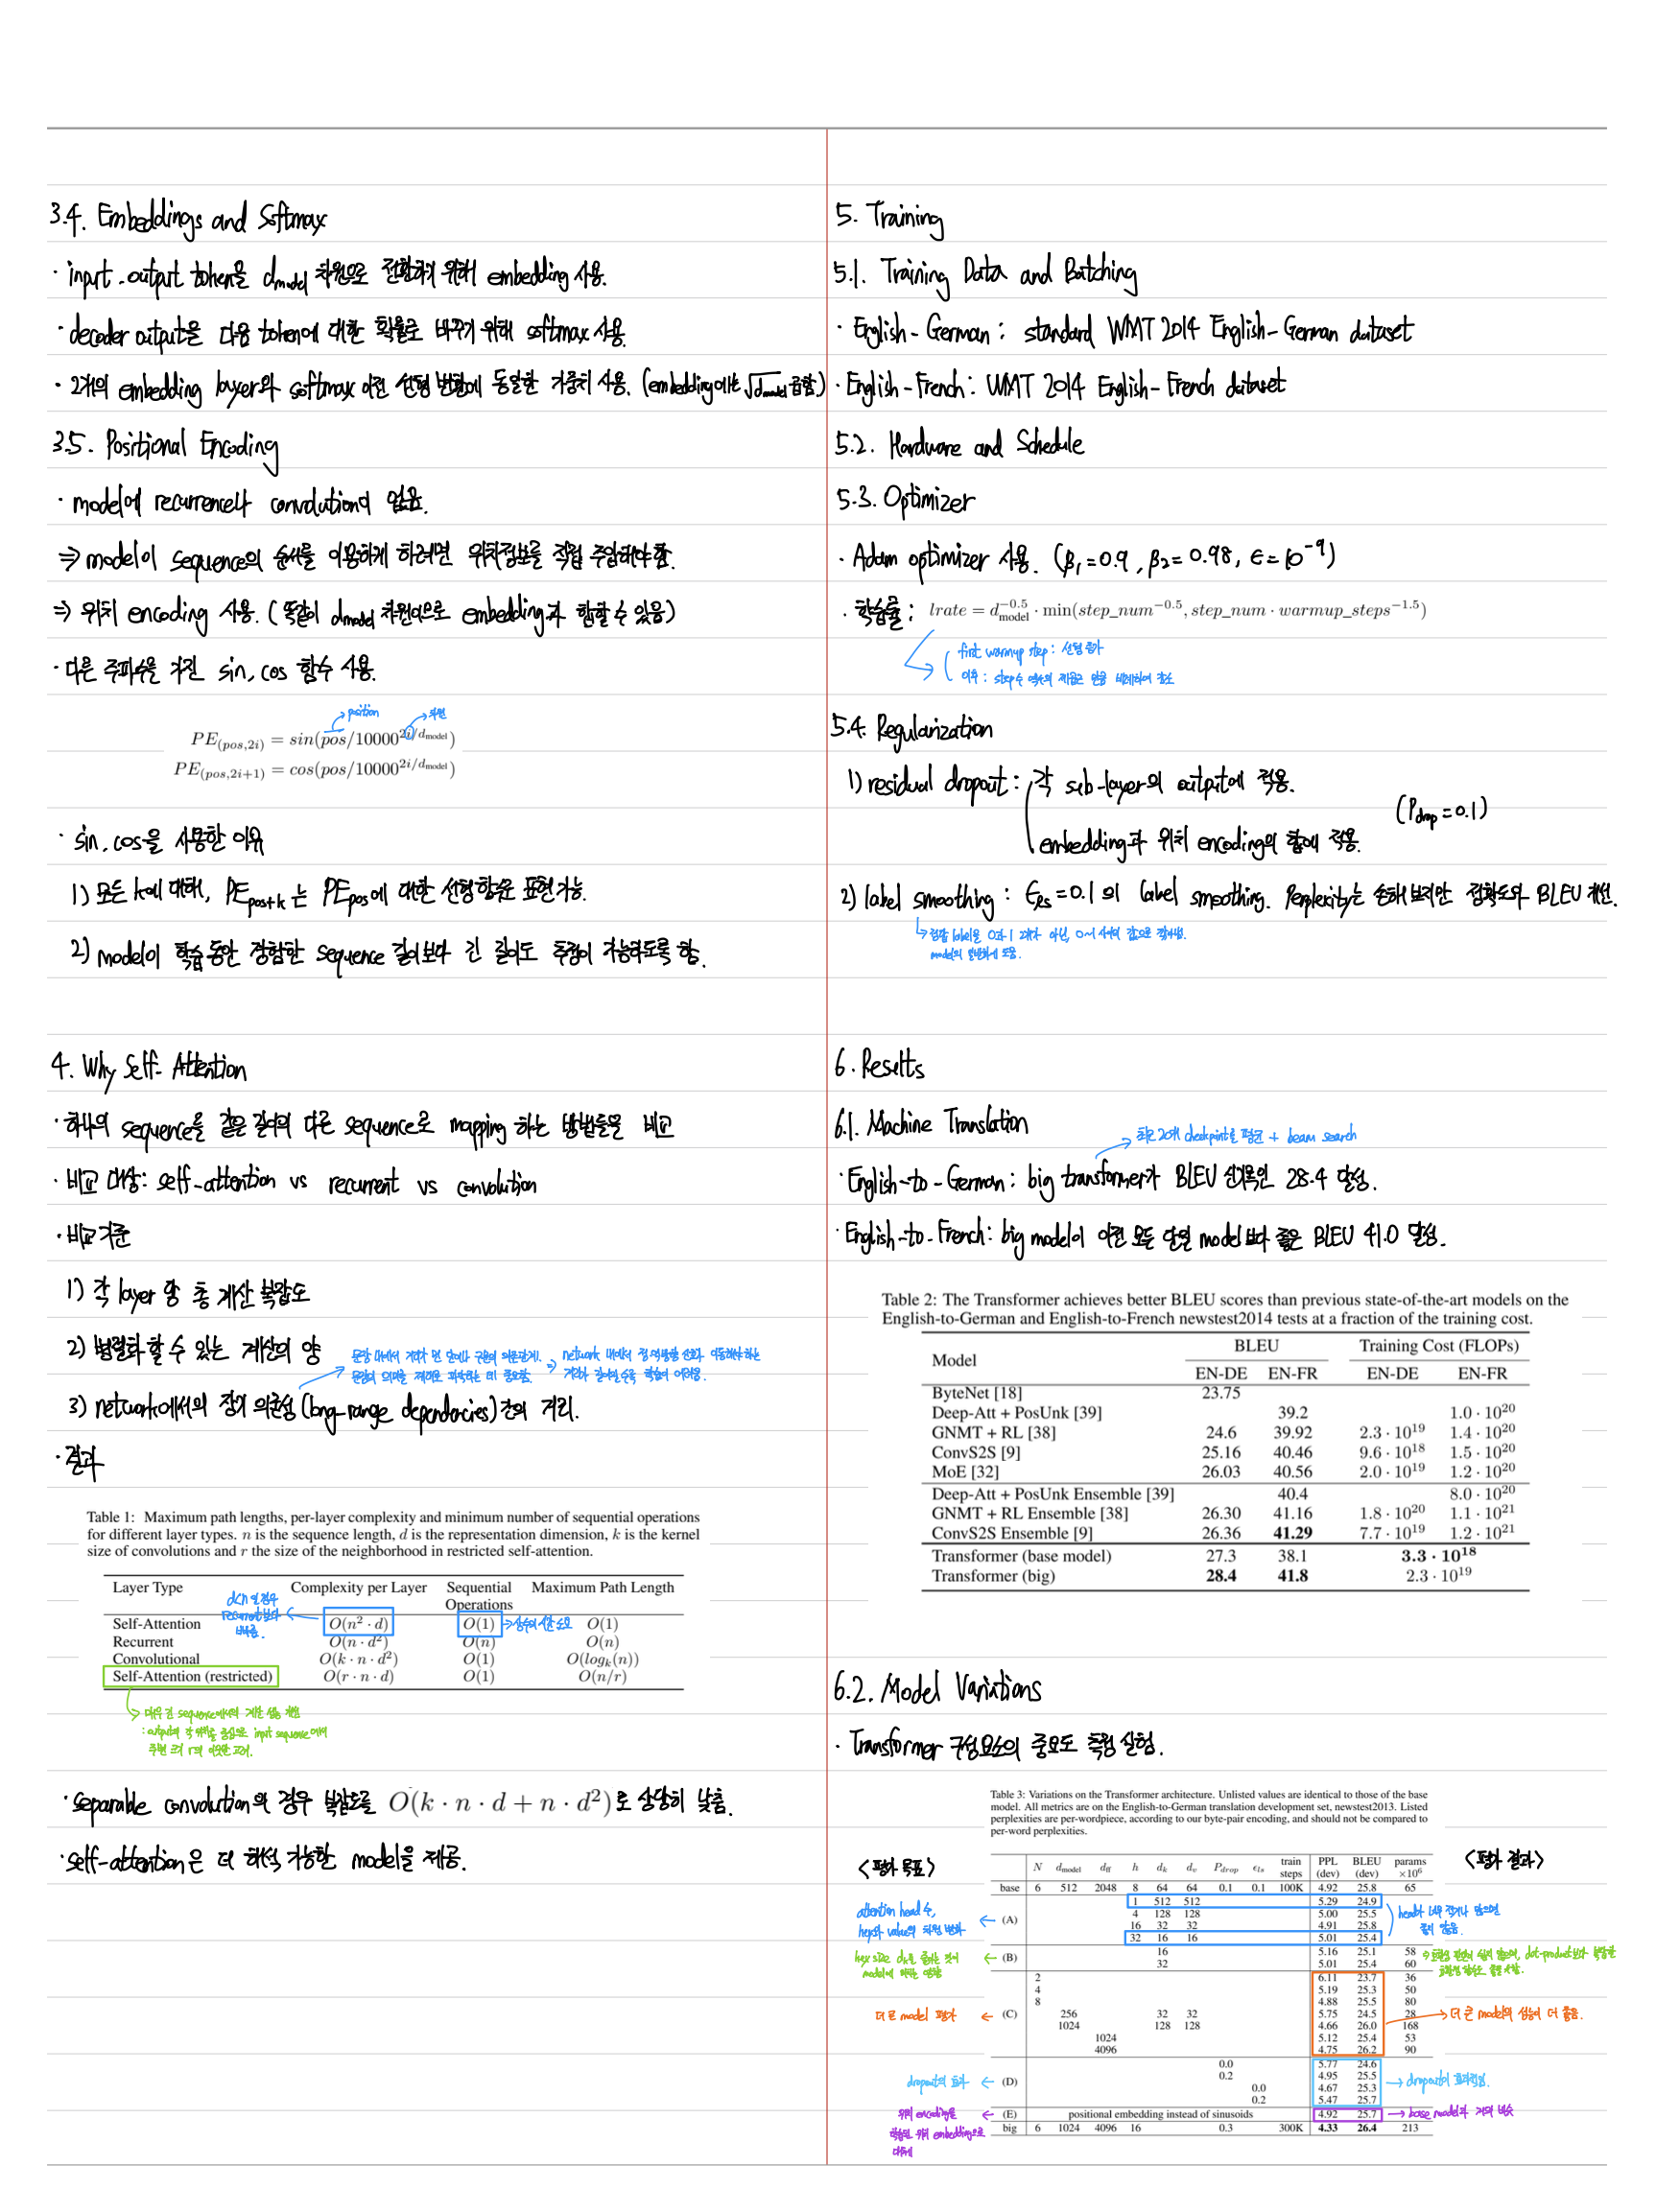 3.4. Embeddings and Softmax
· input-output token을 d_model 차원으로 전환하기 위해 embedding 사용.
· decoder output을 다음 token에 대한 확률로 바꾸기 위해 softmax 사용.
· 2개의 embedding layer와 softmax 이전 선형 변환에 동일한 가중치 사용. (embedding에는 √d_model 곱함.)
3.5. Positional Encoding
· model에 recurrence나 convolution이 없음.
⇒ model이 sequence의 순서를 이용하게 하려면 위치정보를 직접 주입해야함.
⇒ 위치 encoding 사용. (똑같이 d_model 차원이므로 embedding과 합할 수 있음)
· 다른 주파수을 가진 sin, cos 함수 사용.
position
차원
PE_(pos,2i) = sin(pos/10000^{2i/d_model})
PE_(pos,2i+1) = cos(pos/10000^{2i/d_model})
· sin, cos을 사용한 이유
1) 모든 k에 대해, PE_pos+k 는 PE_pos에 대한 선형함수로 표현가능.
2) model이 학습동안 경험한 sequence 길이보다 긴 길이도 추정이 가능하도록 함.
4. Why Self-Attention
· 하나의 sequence을 같은 길이의 다른 sequence로 mapping 하는 방법들을 비교
· 비교 대상: self-attention vs recurrent vs convolution
· 비교기준
1) 각 layer 당 총 계산 복잡도
2) 병렬화할 수 있는 계산의 양
문장 내에서 거리가 먼 단어나 구문의 의존관계.
문장의 의미를 제대로 파악하는 데 중요함.
⇒ network 내에서 정·역방향 신호가 이동해야하는
거리가 길어질수록 학습이 어려움.
3) network에서의 장기 의존성(long-range dependencies)간의 거리.
· 결과
Table 1: Maximum path lengths, per-layer complexity and minimum number of sequential operations
for different layer types. n is the sequence length, d is the representation dimension, k is the kernel
size of convolutions and r the size of the neighborhood in restricted self-attention.
Layer Type Complexity per Layer Sequential Operations Maximum Path Length
d<n일경우
recurrent보다
빠름.
Self-Attention O(n² · d) O(1) →상수의 시간 소모 O(1)
Recurrent O(n · d²) O(n) O(n)
Convolutional O(k · n · d²) O(1) O(log_k(n))
Self-Attention (restricted) O(r · n · d) O(1) O(n/r)
매우 긴 sequence에서의 계산 성능 개선
: output의 각 위치를 중심으로 input sequence에서
주변 크기 r의 이웃만 고려.
· separable convolution의 경우 복잡도를 O(k · n · d + n · d²)로 상당히 낮춤.
· self-attention은 더 해석 가능한 model을 제공.
5. Training
5.1. Training Data and Batching
· English-German : standard WMT 2014 English-German dataset
· English-French : WMT 2014 English-French dataset
5.2. Hardware and Schedule
5.3. Optimizer
· Adam optimizer 사용. (β₁=0.9, β₂=0.98, ϵ=10⁻⁹)
· 학습률 : lrate = d_model^{-0.5} · min(step_num^{-0.5}, step_num · warmup_steps^{-1.5})
first warmup step : 선형 증가
이후 : step수 역수의 제곱근 만큼 비례하여 감소
5.4. Regularization
1) residual dropout : 각 sub-layer의 output에 적용.
(P_drop = 0.1)
embedding과 위치 encoding의 합에 적용.
2) label smoothing : ϵ_ls = 0.1의 label smoothing. Perplexity는 손해보지만 정확도와 BLEU 개선.
정답 label을 0과 1 2개가 아닌, 0~1 사이의 값으로
model의 일반화에 도움.
6. Results
6.1. Machine Translation
최근 20개 checkpoint를 평균 + beam search
· English-to-German : big transformer가 BLEU 신기록인 28.4 달성.
· English-to-French : big model이 이전 모든 단일 model보다 좋은 BLEU 41.0 달성.
Table 2: The Transformer achieves better BLEU scores than previous state-of-the-art models on the
English-to-German and English-to-French newstest2014 tests at a fraction of the training cost.
Model BLEU Training Cost (FLOPs)
EN-DE EN-FR EN-DE EN-FR
ByteNet [18] 23.75
Deep-Att + PosUnk [39] 39.2 1.0 · 10²⁰
GNMT + RL [38] 24.6 39.92 2.3 · 10¹⁹ 1.4 · 10²⁰
ConvS2S [9] 25.16 40.46 9.6 · 10¹⁸ 1.5 · 10²⁰
MoE [32] 26.03 40.56 2.0 · 10¹⁹ 1.2 · 10²⁰
Deep-Att + PosUnk Ensemble [39] 40.4 8.0 · 10²⁰
GNMT + RL Ensemble [38] 26.30 41.16 1.8 · 10²⁰ 1.1 · 10²¹
ConvS2S Ensemble [9] 26.36 41.29 7.7 · 10¹⁹ 1.2 · 10²¹
Transformer (base model) 27.3 38.1 3.3 · 10¹⁸
Transformer (big) 28.4 41.8 2.3 · 10¹⁹
6.2. Model Variations
· Transformer 구성요소의 중요도 측정 실험.
Table 3: Variations on the Transformer architecture. Unlisted values are identical to those of the base
model. All metrics are on the English-to-German translation development set, newstest2013. Listed
perplexities are per-wordpiece, according to our byte-pair encoding, and should not be compared to
per-word perplexities.
<평가 목표>
<평가 결과>
N d_model d_ff h d_k d_v P_drop ϵ_ls train steps PPL (dev) BLEU (dev) params ×10⁶
base 6 512 2048 8 64 64 0.1 0.1 100K 4.92 25.8 65
attention head 수,
key와 value의 차원 변화
(A)
1 512 512 5.29 24.9
4 128 128 5.00 25.5
16 32 32 4.91 25.8
32 16 16 5.01 25.4
head가 너무 적거나 많으면
좋지 않음.
key size d_k를 줄이는 것이
model에 미치는 영향
(B)
16 5.16 25.1 58
32 5.01 25.4 60
호환성 판단이 쉽지 않으며, dot-product보다 복잡한
호환성 함수도
더 큰 model 평가
(C)
2 6.11 23.7 36
4 5.19 25.3 50
8 4.88 25.5 80
256 32 32 5.75 24.5 28
1024 128 128 4.66 26.0 168
1024 5.12 25.4 53
4096 4.75 26.2 90
더 큰 model의 성능이 더 좋음.
dropout의 효과
(D)
0.0 5.77 24.6
0.2 4.95 25.5
0.0 4.67 25.3
0.2 5.47 25.7
dropout이 효과적임.
위치 encoding을
학습된 위치 embedding으로
대체
(E) positional embedding instead of sinusoids 4.92 25.7
base model과 거의 비슷
big 6 1024 4096 16 0.3 300K 4.33 26.4 213